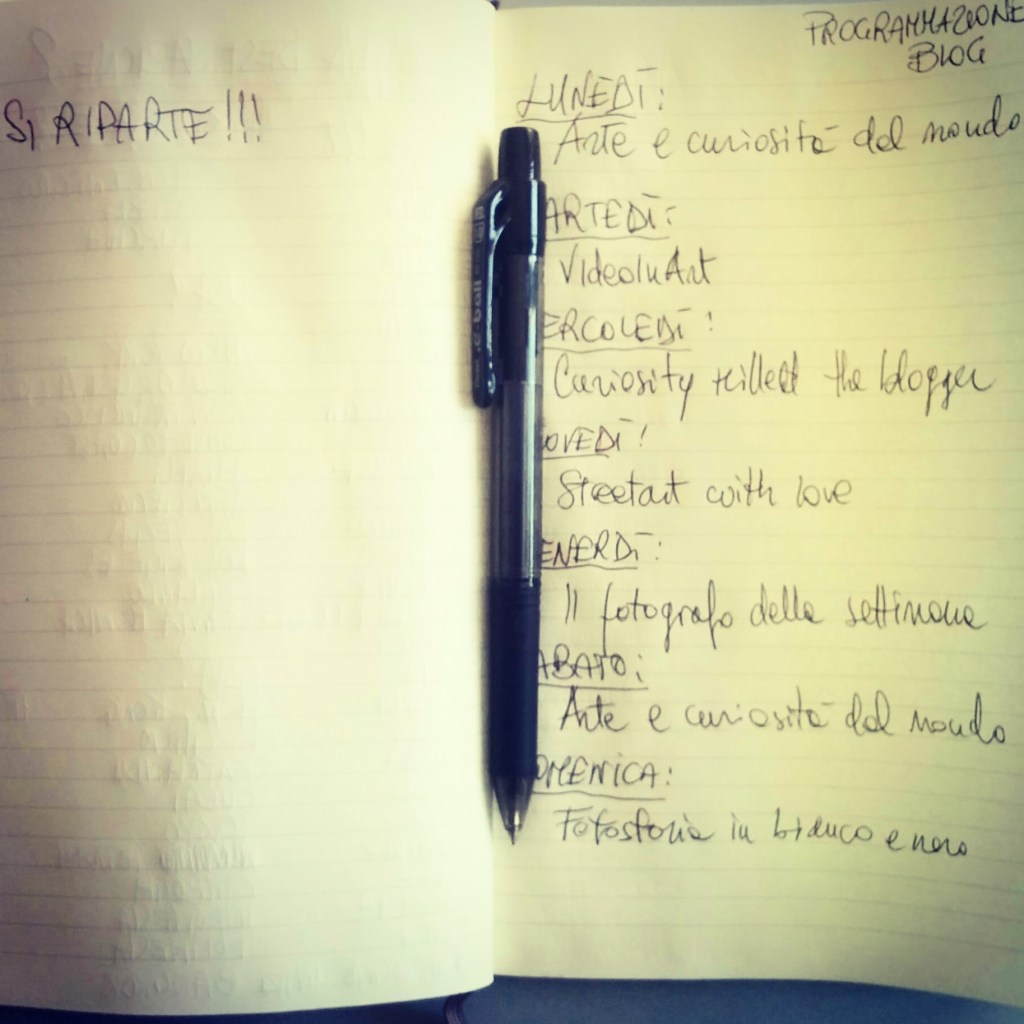 SI RIPARTE!!!
PROGRAMMAZIONE
BLOG
LUNEDÌ:
Arte e curiosità dal mondo
ARTEDÌ:
VideoInArt
ERCOLEDÌ:
Curiosity killed the blogger
OVEDÌ:
Streetart with love
ENERDÌ:
Il fotografo della settimana
ABATO:
Arte e curiosità dal mondo
OMENICA:
Fotostoria in bianco e nero